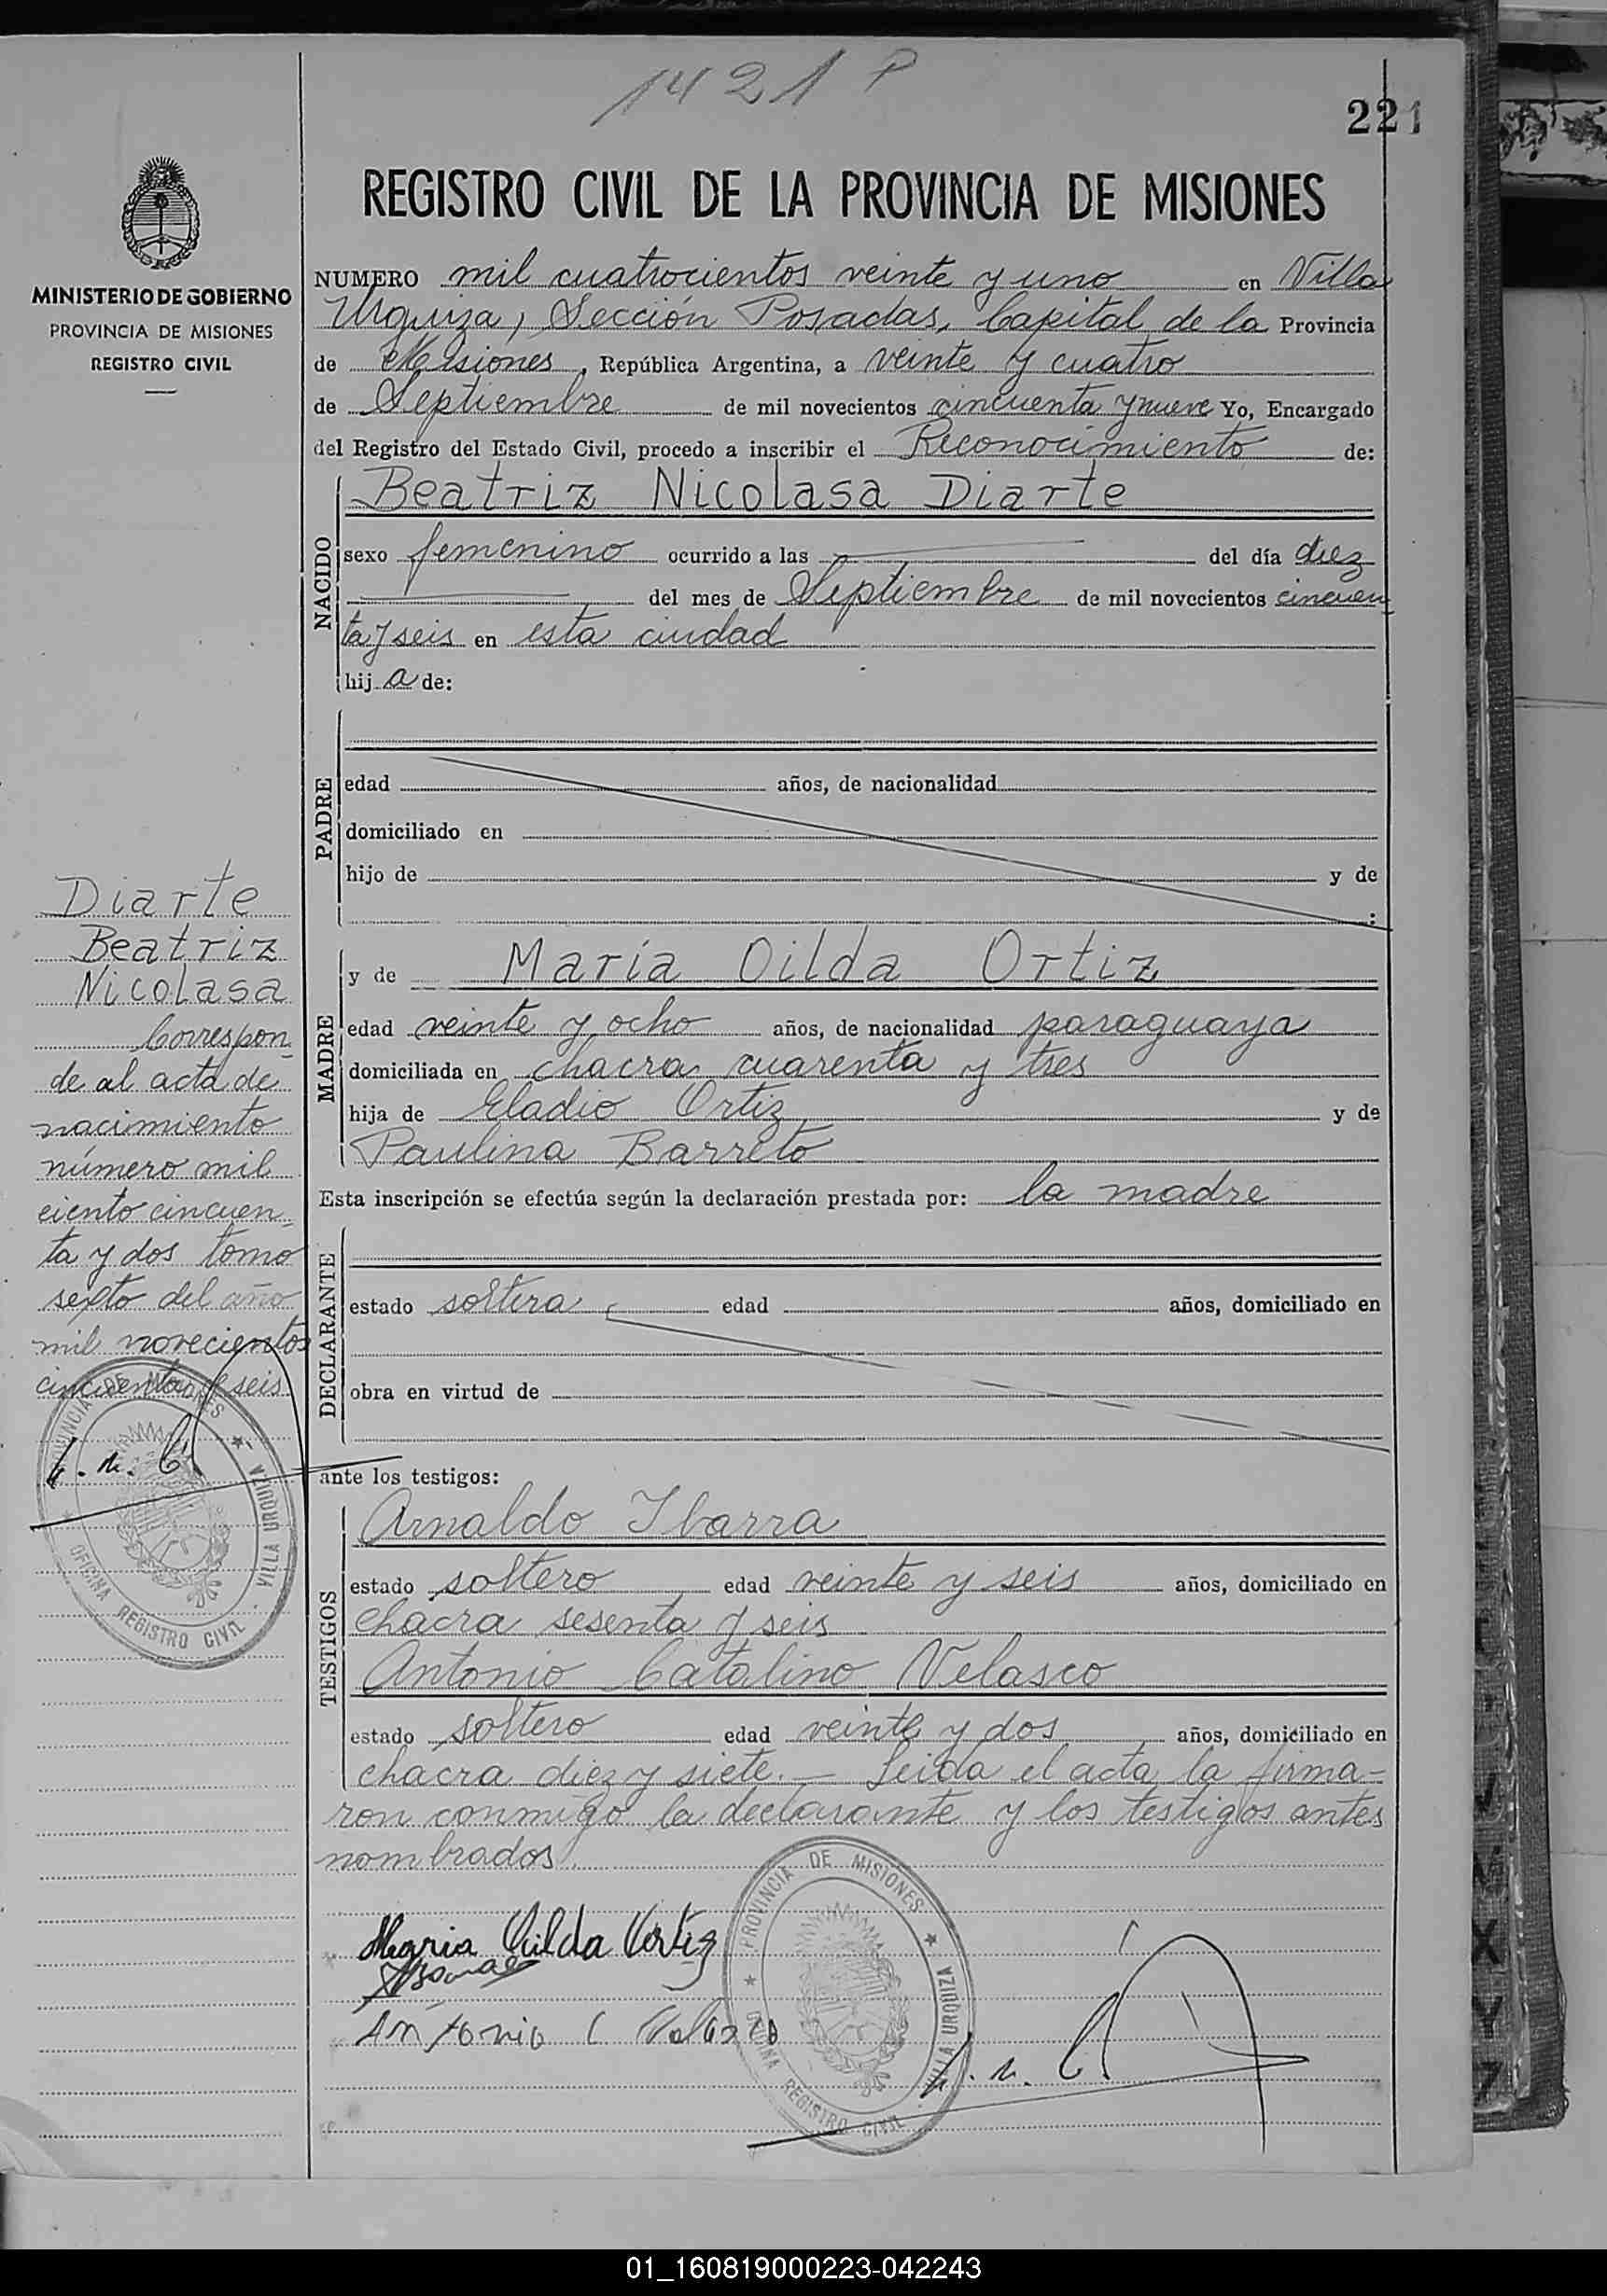 1421 P
221
MINISTERIO DE GOBIERNO
PROVINCIA DE MISIONES
REGISTRO CIVIL
REGISTRO CIVIL DE LA PROVINCIA DE MISIONES
NUMERO mil cuatrocientos veinte y uno en Villa
Urquiza, Sección Posadas, Capital de la Provincia
de Misiones, República Argentina, a veinte y cuatro
de Septiembre de mil novecientos cincuenta y nueve Yo, Encargado
del Registro del Estado Civil, procedo a inscribir el Reconocimiento de:
NACIDO
Beatriz Nicolasa Diarte
sexo femenino ocurrido a las del día diez
del mes de Septiembre de mil novecientos cincuen
ta y seis en esta ciudad
hij a de:
PADRE
edad años, de nacionalidad
domiciliado en
hijo de y de
:
MADRE
y de María Oilda Ortiz
edad veinte y ocho años, de nacionalidad paraguaya
domiciliada en chacra cuarenta y tres
hija de Eladio Ortiz y de
Paulina Barreto
Esta inscripción se efectúa según la declaración prestada por: la madre
DECLARANTE
estado soltera, edad años, domiciliado en
obra en virtud de
ante los testigos:
TESTIGOS
Arnaldo Ibarra
estado soltero edad veinte y seis años, domiciliado en
chacra sesenta y seis
Antonio Catalino Velasco
estado soltero edad veinte y dos años, domiciliado en
chacra diez y siete.— Leida el acta la firma-
ron conmigo la declarante y los testigos antes
nombrados.
Maria Oilda Ortiz
Antonio C Velasco
PROVINCIA DE MISIONES
VILLA URQUIZA
OFICINA REGISTRO CIVIL
Diarte
Beatriz
Nicolasa
Correspon-
de al acta de
nacimiento
número mil
ciento cincuen-
ta y dos tomo
sexto del año
mil novecientos
cincuenta y seis.
PROVINCIA DE MISIONES
VILLA URQUIZA
OFICINA REGISTRO CIVIL
01_160819000223-042243